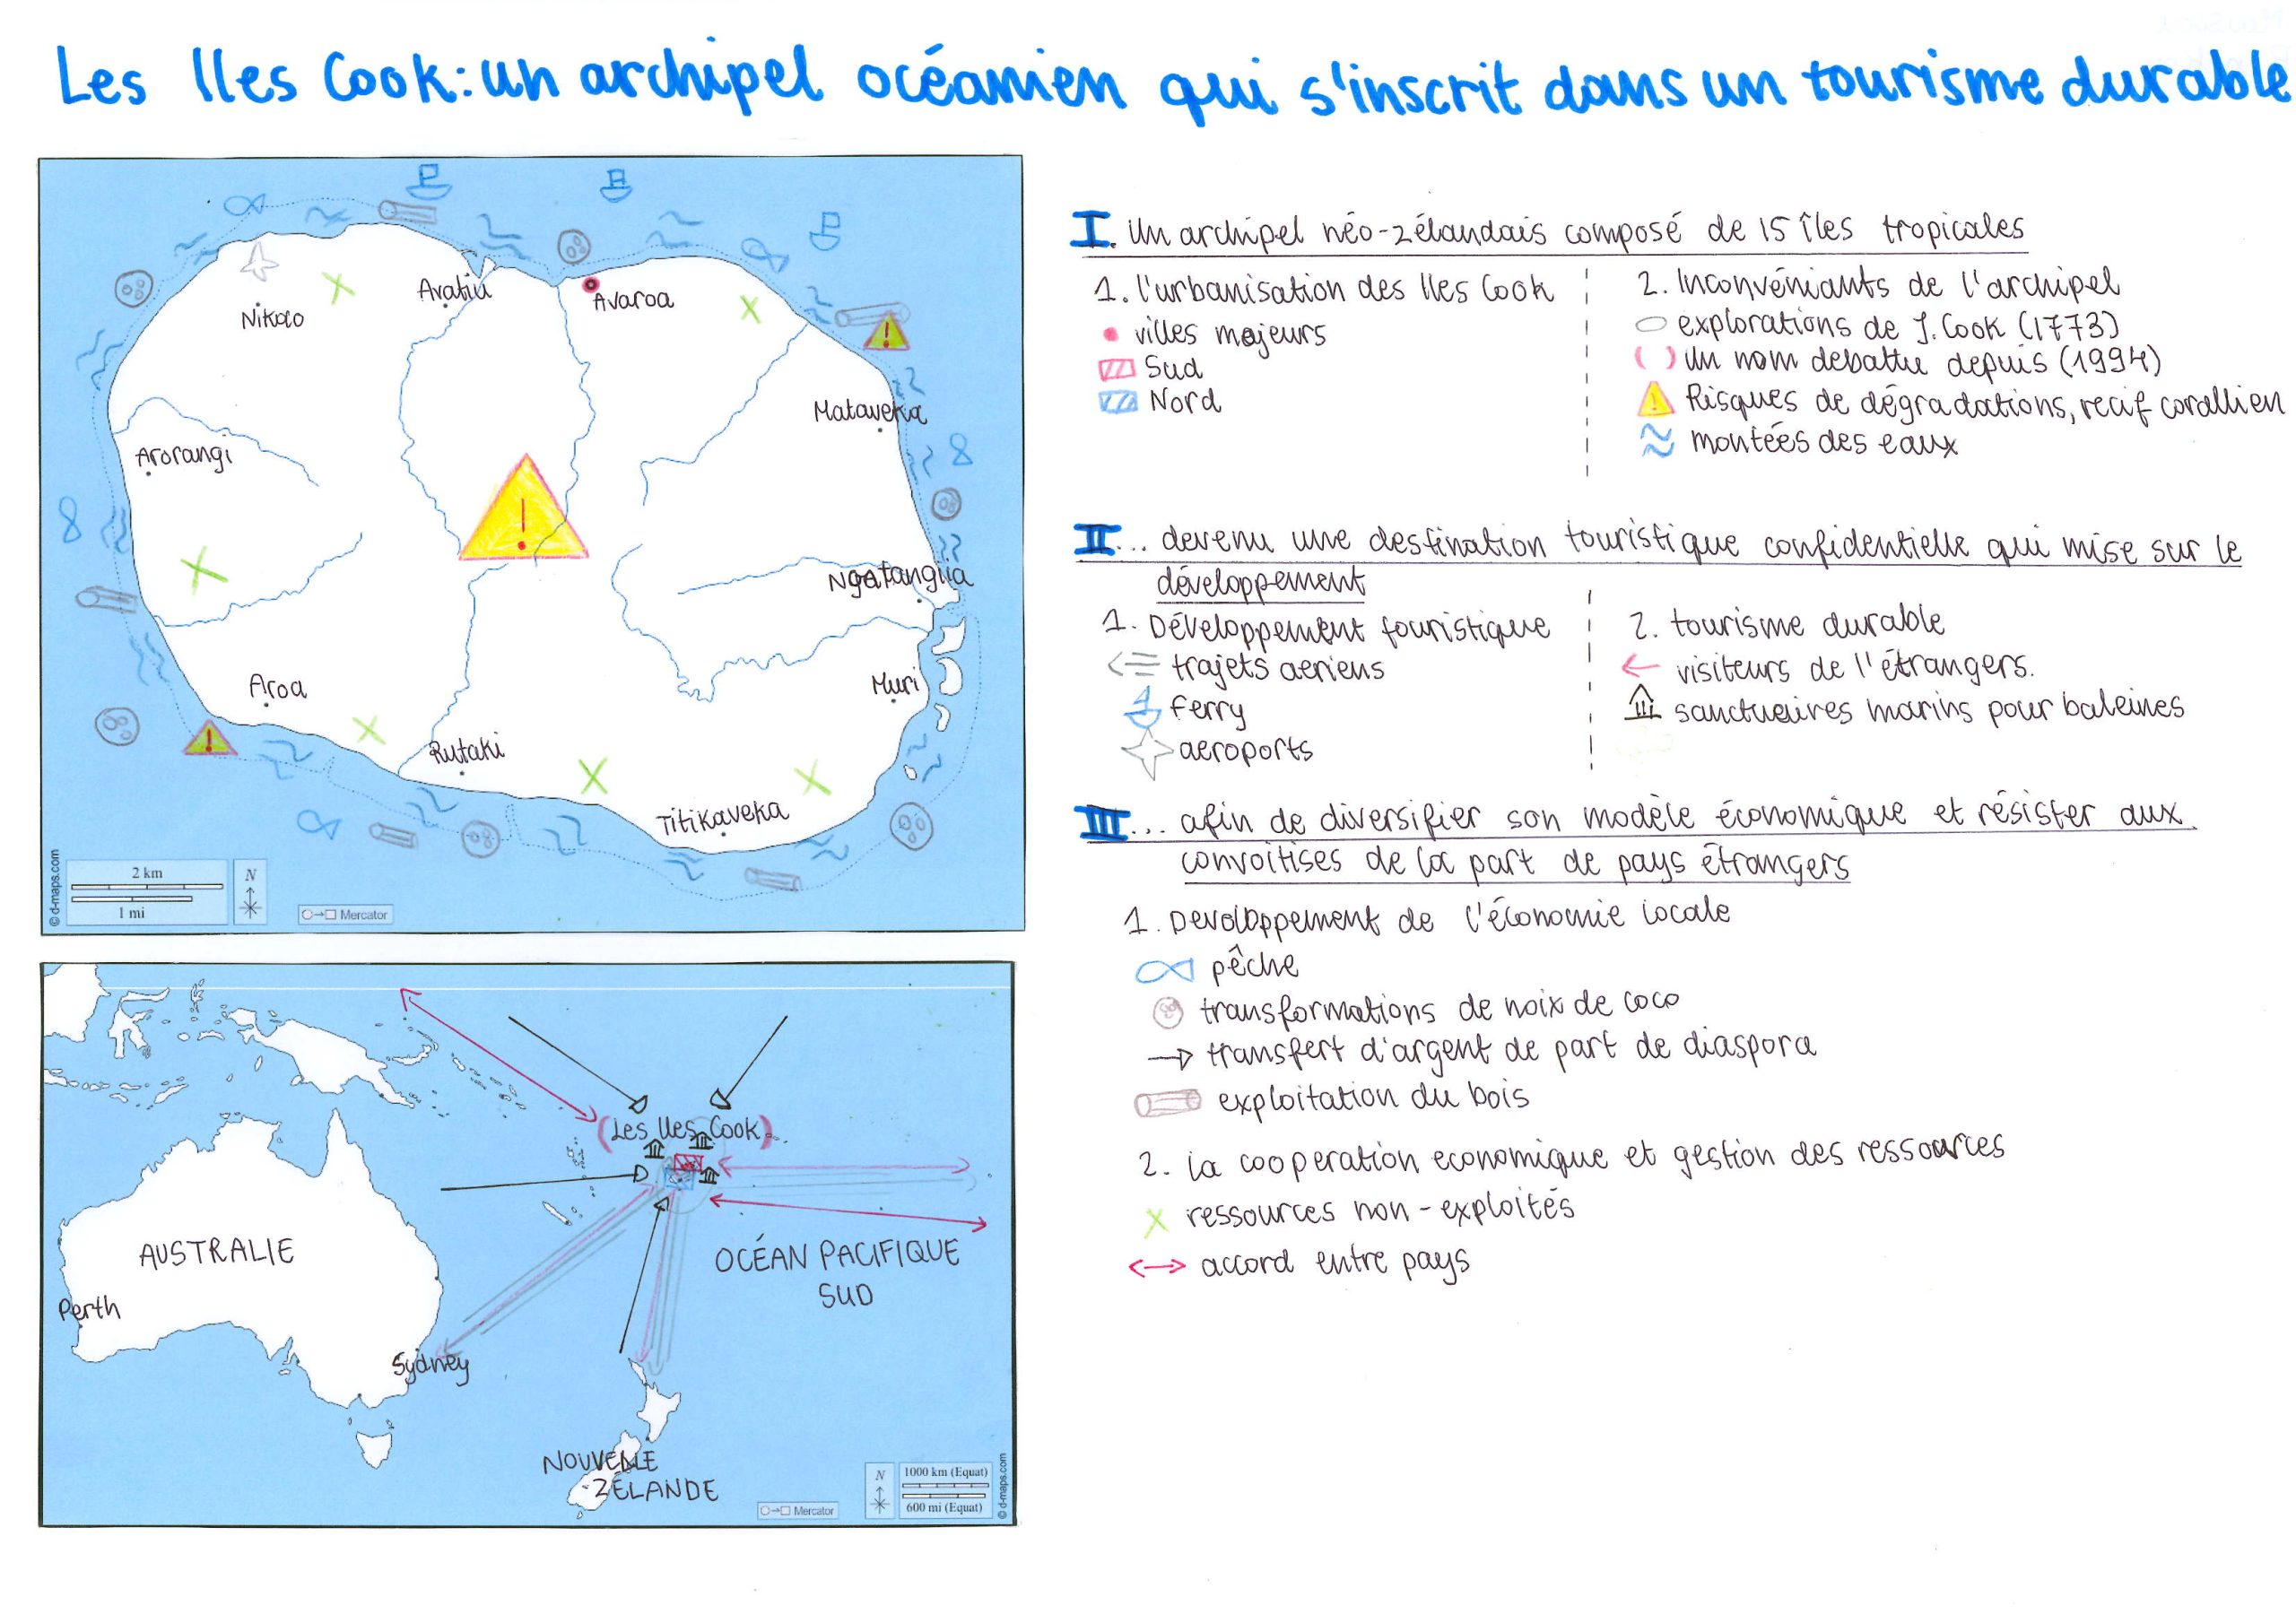 Les Iles Cook: un archipel océanien qui s'inscrit dans un tourisme durable
Nikao
Avatiu
Avaroa
Matavera
Arorangi
!
!
Ngatangiia
Aroa
Muri
!
Rutaki
Titikaveka
2 km
1 mi
N
Mercator
© d-maps.com
(Les Iles Cook)
AUSTRALIE
Perth
Sydney
OCÉAN PACIFIQUE
SUD
NOUVELLE
ZÉLANDE
N
1000 km (Equat)
600 mi (Equat)
Mercator
© d-maps.com
I. Un archipel néo-zélandais composé de 15 îles tropicales
1. l'urbanisation des Iles Cook
villes majeurs
Sud
Nord
2. Inconvéniants de l'archipel
explorations de J. Cook (1773)
( ) un nom debattu depuis (1994)
! Risques de dégradations, recif corallien
montées des eaux
II... devenu une destination touristique confidentielle qui mise sur le
développement
1. Développement touristique
trajets aeriens
ferry
aeroports
2. tourisme durable
visiteurs de l'étrangers.
sanctuaires marins pour baleines
III... afin de diversifier son modèle économique et résister aux
convoitises de la part de pays étrangers
1. Developpement de l'économie locale
pêche
transformations de noix de coco
transfert d'argent de part de diaspora
exploitation du bois
2. la cooperation economique et gestion des ressources
ressources non-exploités
accord entre pays